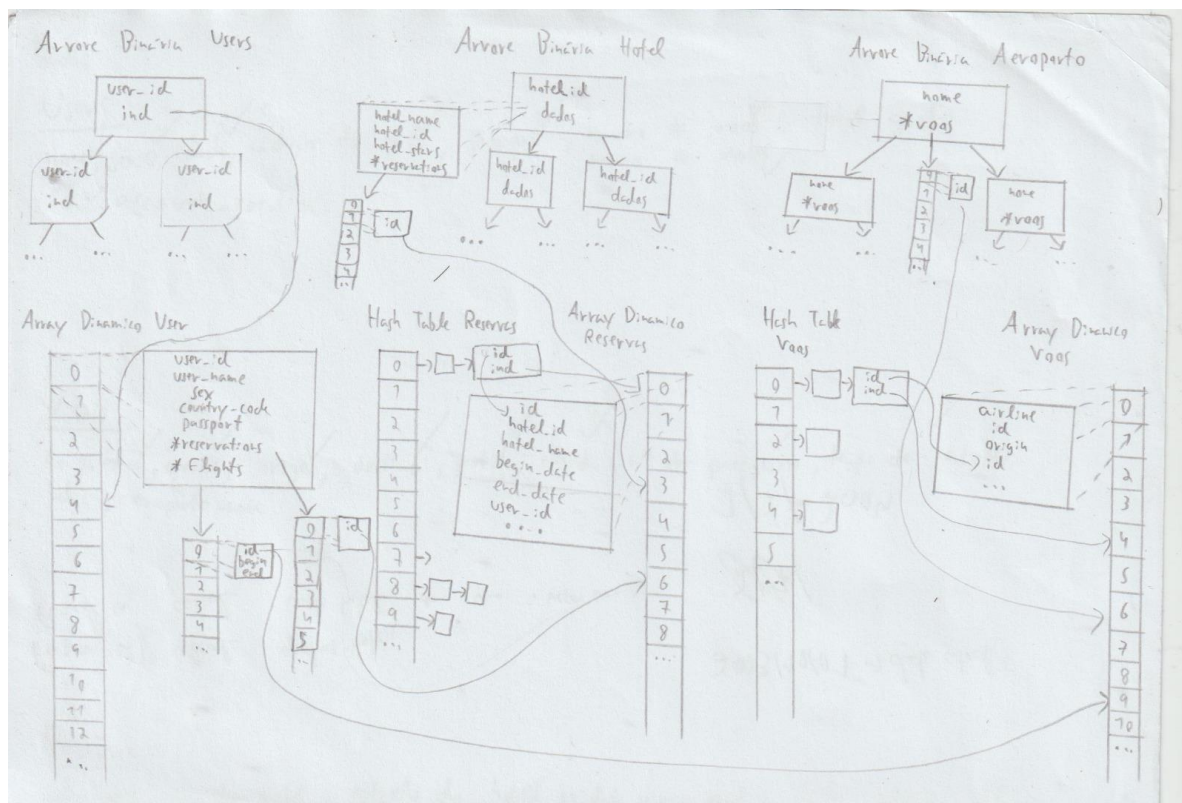 Arvore Binária Users
user_id
ind
user_id
ind
user_id
ind
... ... ... ...
Arvore Binária Hotel
hotel_id
dados
hotel_name
hotel_id
hotel_stars
*reservations
hotel_id
dados
hotel_id
dados
0
1
2
3
4
...
id
... ... ... ...
Arvore Binária Aeroporto
nome
*voos
nome
*voos
nome
*voos
0
1
2
3
4
...
id
... ... ... ...
Array Dinamico User
0
1
2
3
4
5
6
7
8
9
10
11
12
...
user_id
user_name
sex
country_code
passport
*reservations
* Flights
0
1
2
3
4
...
id
begin
end
0
1
2
3
4
5
...
id
Hash Table Reservas
0
1
2
3
4
5
6
7
8
9
...
id
ind
Array Dinamico
Reservas
id
hotel_id
hotel_name
begin_date
end_date
user_id
....
0
1
2
3
4
5
6
7
8
...
Hash Table
Voos
0
1
2
3
4
5
...
id
ind
Array Dinamico
Voos
airline
id
origin
id
...
0
1
2
3
4
5
6
7
8
9
10
...